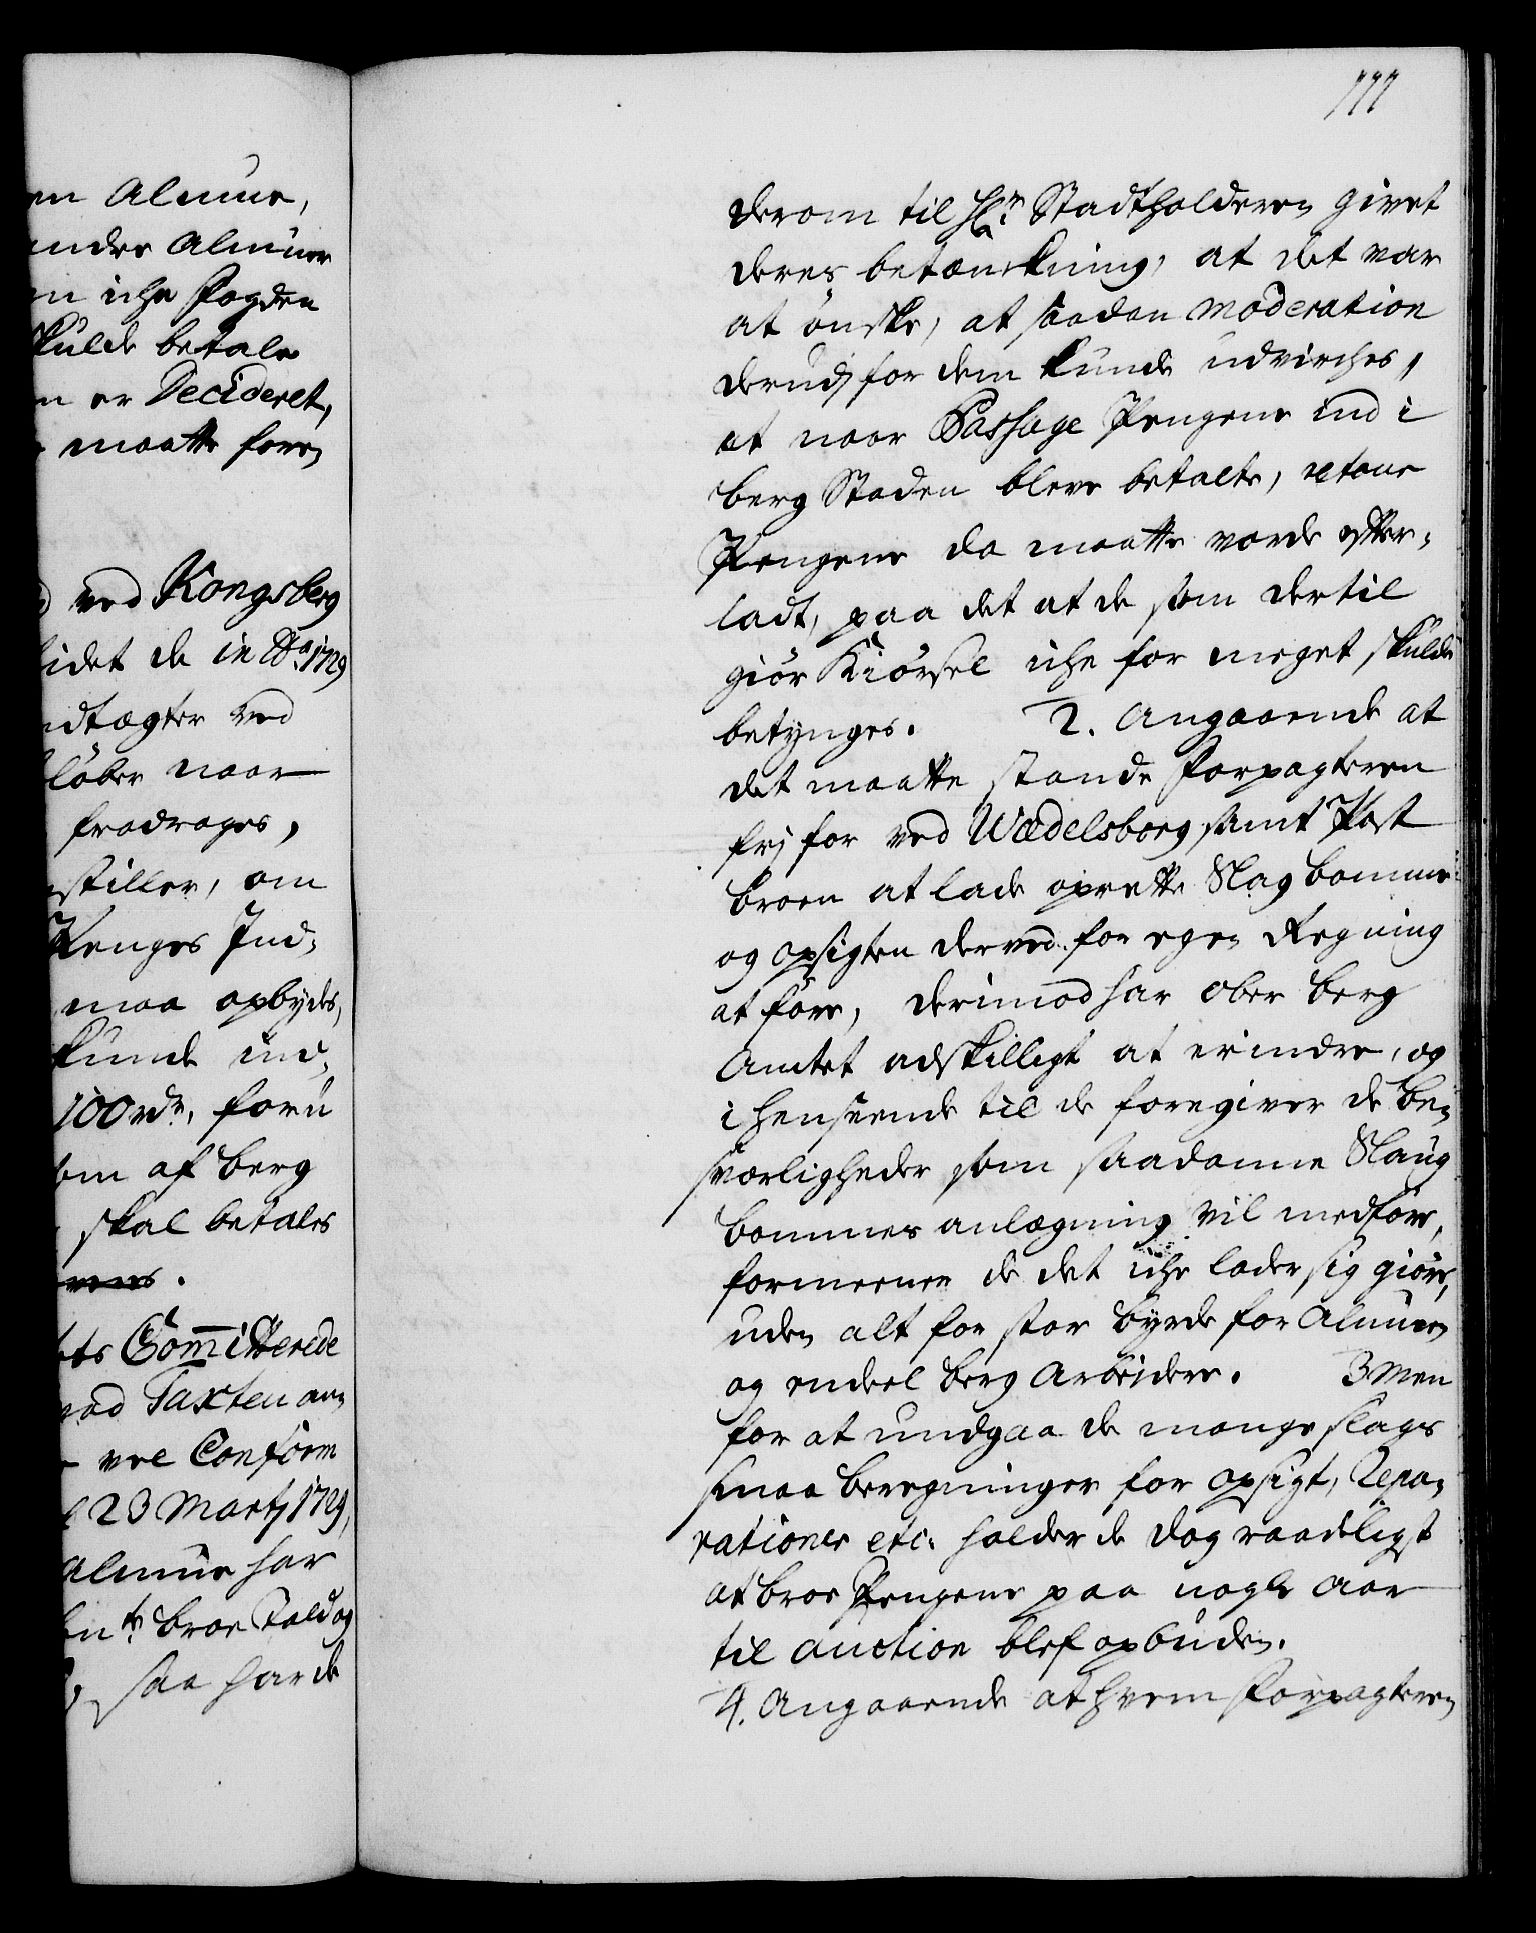 en Almue,
andre Almuer
en iche Fogden
skulde betale
n er Decideret,
maatte foren
ved Kongsberg
idet de in Do. 1729
ndtægter ved
løber naar
fradrages,
stiller, om
Penges Ind-
maa opbydes,
kunde ind-
100 rdr. foru
som af berg
skal betales
ts Committerede
ved Taxten an-
vel Conform
23 Martj 1729,
Almue har
broe Told og
saa har de
777
derom til Hr. Stadtholderen givet
deres betænckning, at det var
at ønske, at saadan Moderation
derudj for dem kunde udvirches,
at naar Passage Pengene ind i
berg Staden bleve betalte, retour
Pengene da maatte vorde efter-
ladt, paa det at de som dertil
giør Kiørsel iche for meget skulde
betynges. 2. Angaaende at
det maatte stande Forpagteren
frj for ved Wædelsborg samt Post
broen at lade oprette Slag bomme
og opsigten derved for egen Regning
at føre, derimod har Ober berg
Amtet adskilligt at erindre, og
i henseende til de foregiver de be-
sværligheder som saadanne Slaug
bommes anlægning vil medføre,
formeener de det iche lader sig giøre,
uden alt for stor byrde for Almuen
og endeel berg Arbeidere. 3 Men
for at undgaa de mange slags
smaa beregninger for opsigt, Repa-
rationer etc. holder de dog raadeligst
at broe Pengene paa nogle Aar
til auction blef opbuden.
4. Angaaende at hvem Forpagteren